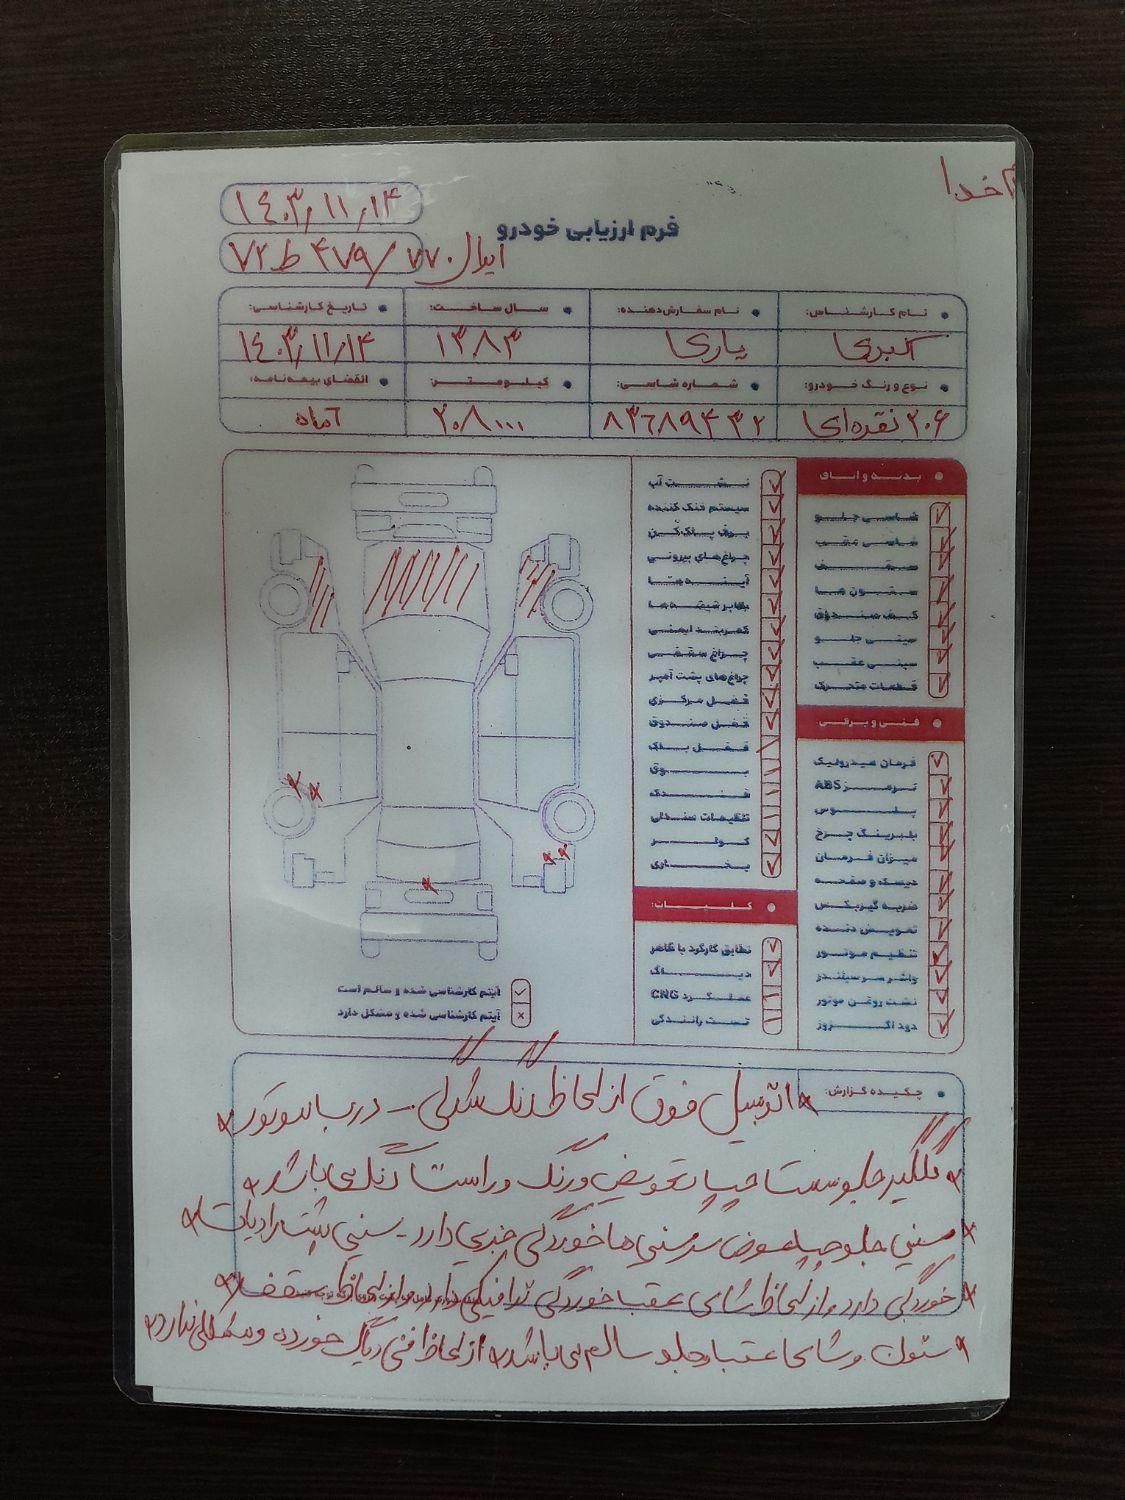 خدا
۱۴۰۳/۱۱/۱۴
فرم ارزیابی خودرو
ایران ۷۷ / ۴۷۹ ط ۷۲
نام کارشناس:
نام سفارش‌دهنده:
سال ساخت:
تاریخ کارشناسی:
اکبری
یاری
۱۳۸۳
۱۴۰۳/۱۱/۱۴
نوع و رنگ خودرو:
شماره شاسی:
کیلومتر:
انقضای بیمه‌نامه:
۲۰۶ نقره‌ای
۸۳۶۸۹۴۳۲
۲۰۸۰۰۰
۶ ماه
بدنه و اتاق
شاسی جلو
شاسی عقب
سقف
ستون ها
کف صندوق
سینی جلو
سینی عقب
قطعات متحرک
فنی و برقی
فرمان هیدرولیک
ترمز ABS
پلوس
بلبرینگ چرخ
میزان فرمان
دیسک و صفحه
ضربه گیربکس
تعویض دنده
تنظیم موتور
واشر سر سیلندر
نشت روغن موتور
دود اگزوز
نشت آب
سیستم خنک کننده
برف پاک‌کن
چراغ‌های بیرونی
آینه ها
بالابر شیشه ها
کمربند ایمنی
چراغ سقفی
چراغ‌های پشت آمپر
قفل مرکزی
قفل صندوق
قفل باک
بوق
فندک
تنظیمات صندلی
کولر
بخاری
کلیات:
تطابق کارکرد با ظاهر
دیاگ
عملکرد CNG
تست رانندگی
آیتم کارشناسی شده و سالم است
آیتم کارشناسی شده و مشکل دارد
چکیده گزارش:
اتومبیل فوق از لحاظ رنگ شدگی - درب موتور
گلگیر جلو سمت چپ تعویض و رنگ و راست رنگ می باشد
سینی جلو چپ تعویض سر سینی ها خوردگی جزیی دارد - سینی پشت رادیات
خوردگی دارد و از لحاظ شاسی عقب خوردگی ترافیکی دارد و از لحاظ سقف
ستون و شاسی عقب و جلو سالم می باشد از لحاظ فنی دیاگ خورده و مشکلی ندارد